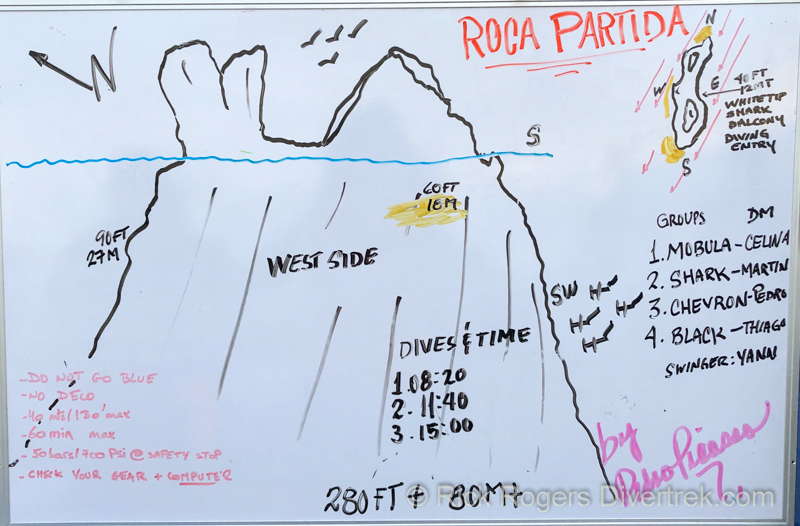 ROCA PARTIDA
N
N
W
E
S
40FT
12MT
WHITETIP
SHARK
BALCONY
DIVING
ENTRY
S
60FT
18M
90FT
27M
WEST SIDE
SW
GROUPS DM
1. MOBULA-CELINA
2. SHARK-MARTIN
3. CHEVRON-PEDRO
4. BLACK-THIAGO
SWINGER: YANN
DIVES & TIME
1. 08:20
2. 11:40
3. 15:00
- DO NOT GO BLUE
- NO DECO
- 40 mts/130' max
- 60 min max
- 50 bars/700 PSI @ SAFETY STOP
- CHECK YOUR GEAR + COMPUTER
by
Pedro Picasso
280FT + 80M+
© Rick Rogers Divertrek.com